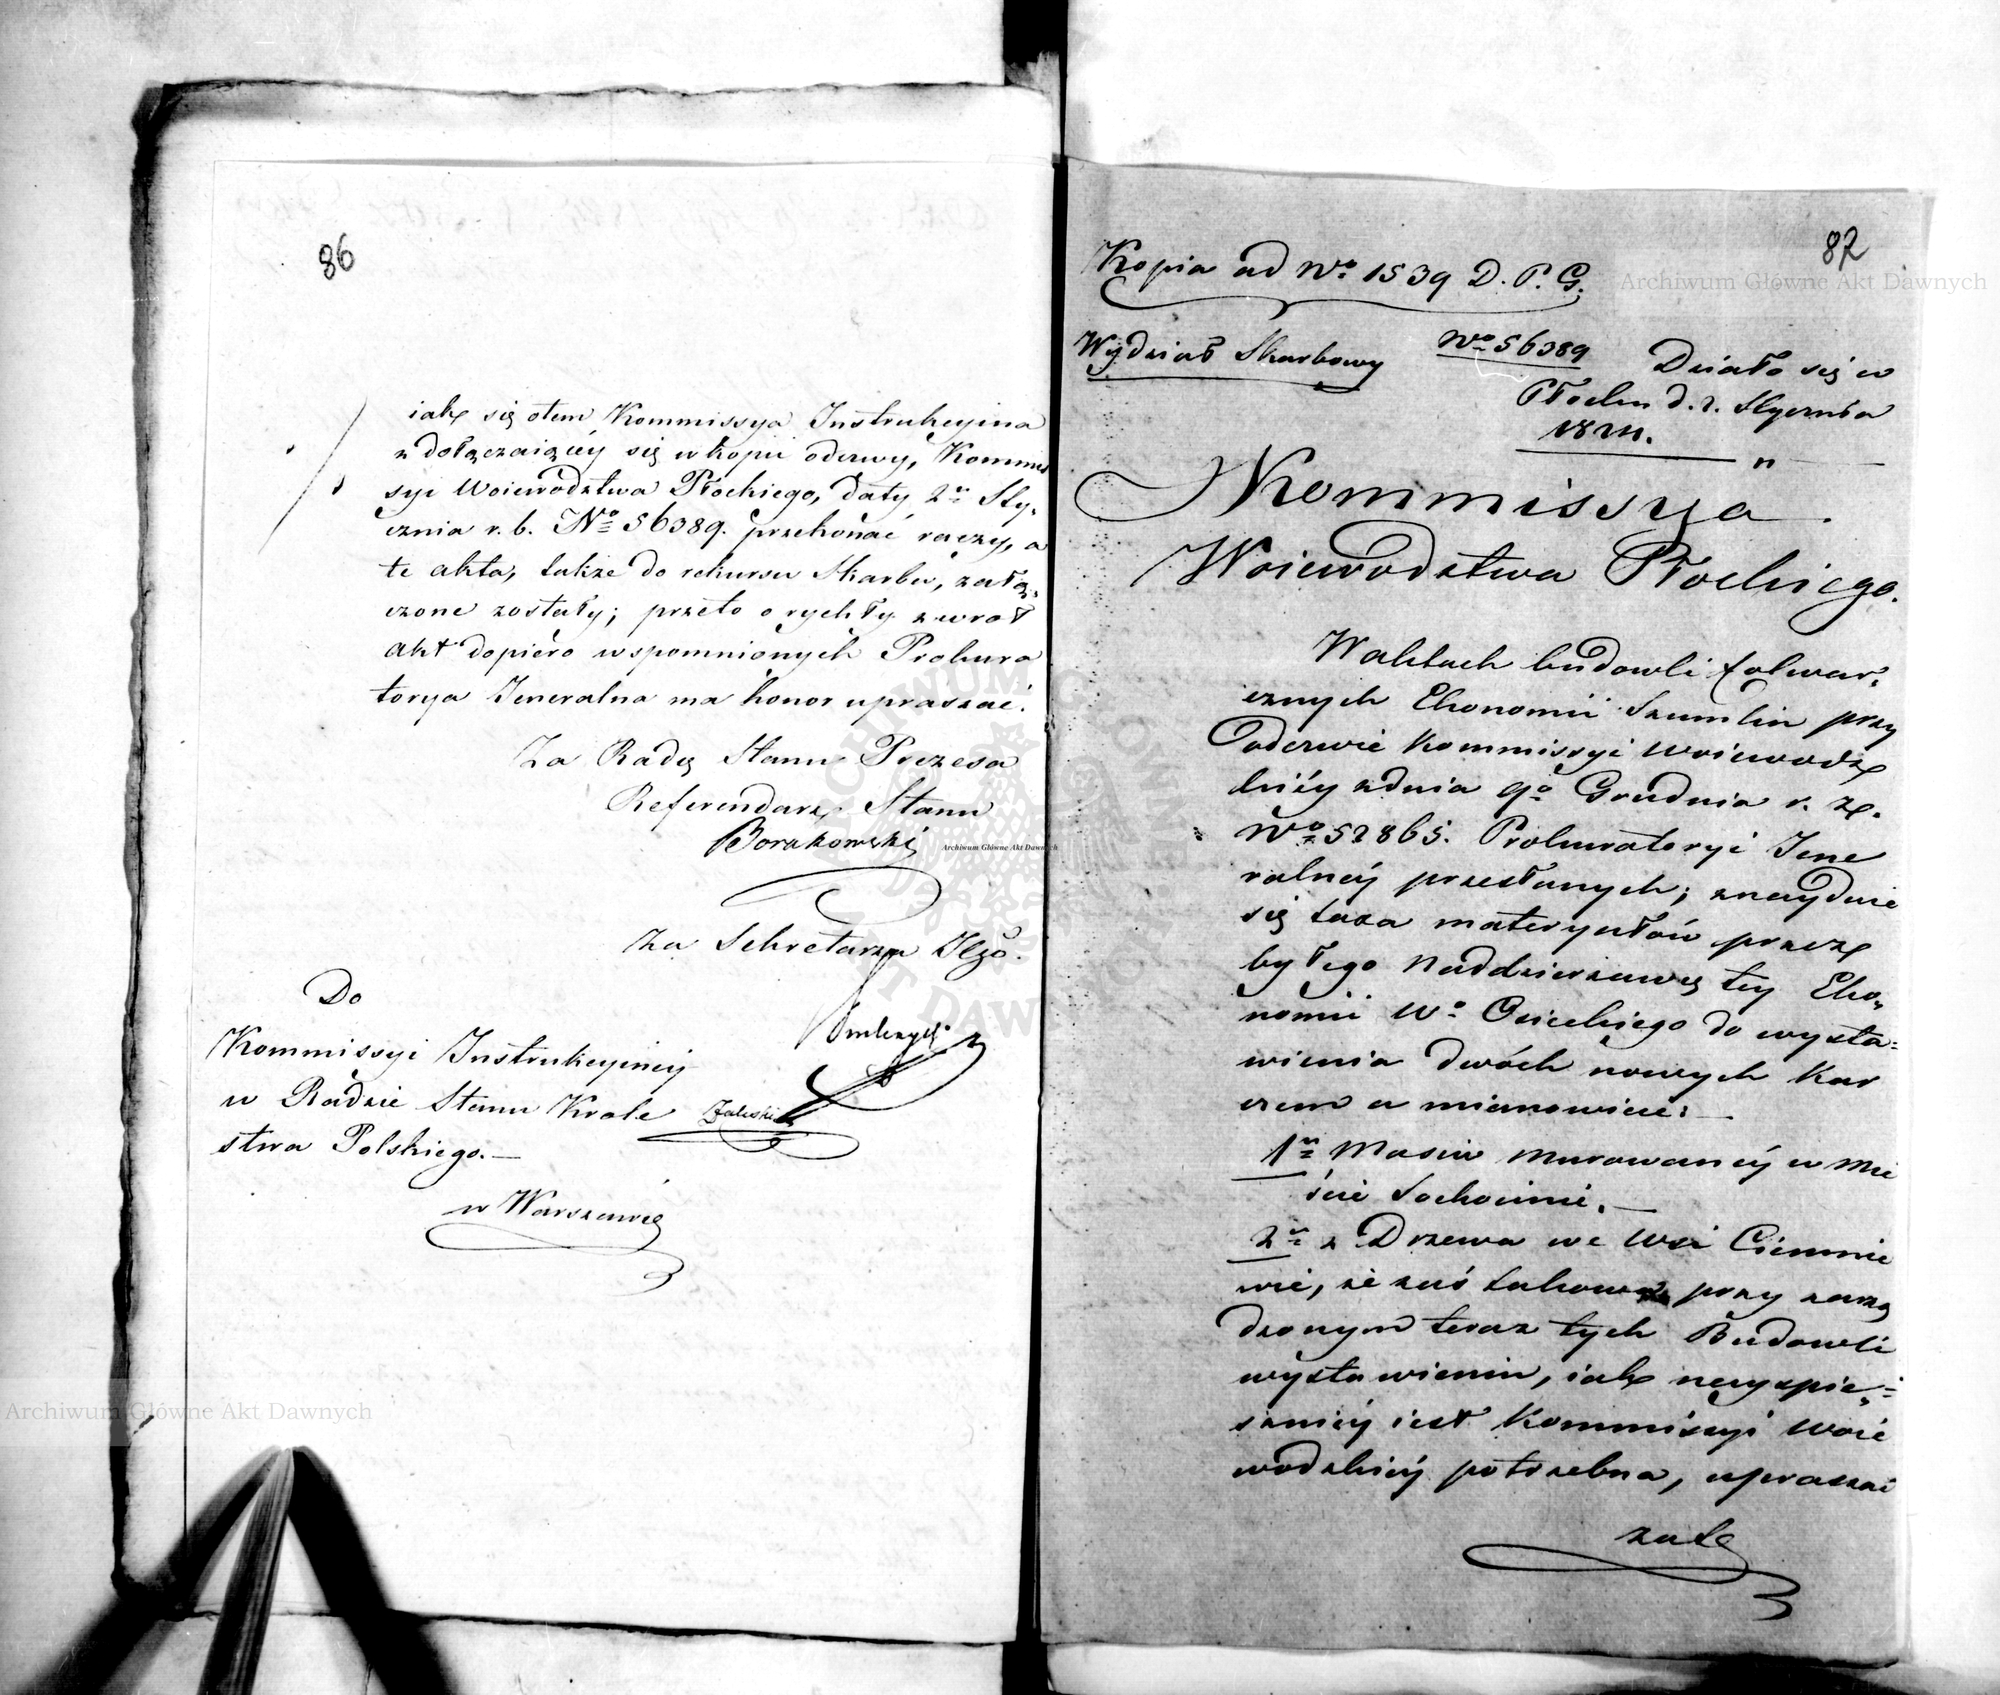 86
iak się otem Kommissya Instrukcyina
z dołączaiącéy się w kopii odezwy, Kommis
syi Woiewodztwa Płockiego, daty 2º Sty,
cznia r. b. Nº 56389. przekonać raczy, a
te akta, także do rekursu Skarbu, załą,
czone zostały; przeto o rychły zwrot
akt dopiero wspomnionych Prokura
torya Jeneralna ma honor upraszać.
Za Radcę Stanu Prezesa
Referendarz Stanu
Borakowski
Za Sekretarza Jlgo.
Do
Kommissyi Instrukcyinéy
w Radzie Stanu Krole
stwa Polskiego.—
Zaleski
w Warszawie
82
Kopia ad Nº 1539 D. P. G.
Wydział Skarbowy
Nº 56389
Działo się w
Płocku d. 2. Stycznia
1821.
Kommissya
Woiewodztwa Płockiego.
W aktach budowli folwar,
cznych Ekonomii Szumlin przy
odezwie Kommissyi woiewodz
kiéy z dnia 9º Grudnia r. z.
Nº 52865. Prokuratoryi Jene
ralnéy przesłanych; znayduie
się taxa materyałów przez
byłego Naddzierzawcę tey Eko,
nomii Wº Osieckiego do wysta=
wienia dwóch nowych kar
czem a mianowicie:—
1º Masiw murowanéy w Mie
ście Sochocinie.—
2º z Drzewa we Wsi Ciemnie
wie, że zaś takowa przy zarzą
dzonym teraz tych Budowli
wystawieniu, iak nayspie,=
szniéy iest Kommissyi Woie
wodzkiéy potrzebna, upraszać
zatę
Archiwum Główne Akt Dawnych
Archiwum Główne Akt Dawnych
Archiwum Główne Akt Dawnych